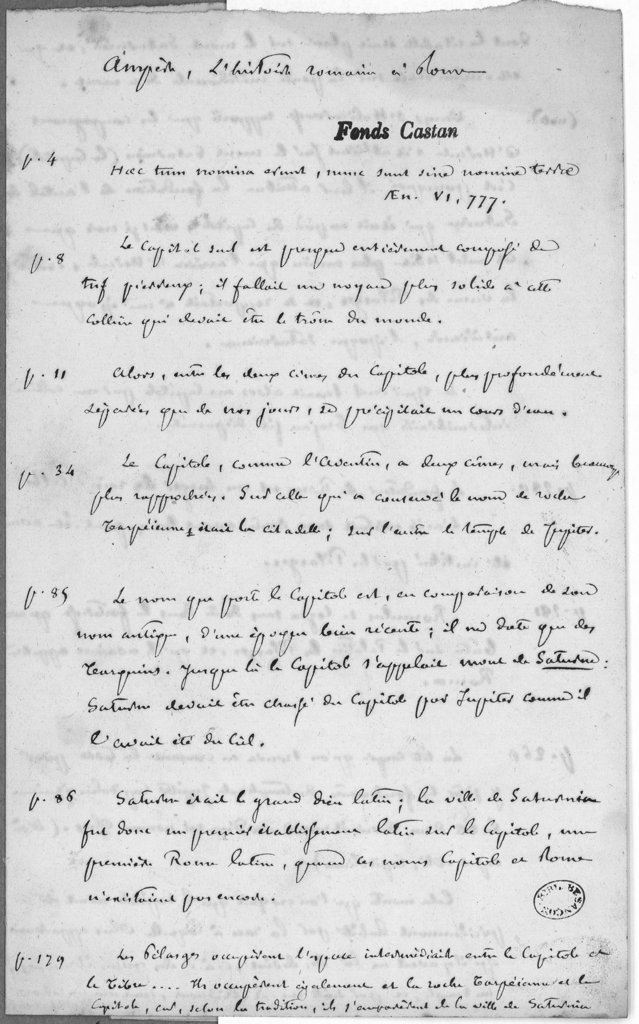 Ampère, L'histoire romaine à Rome
Fonds Castan
p. 4 Hæc tum nomina erunt, nunc sunt sine nomine terræ
Æn. VI, 777.
p. 8 Le Capitole seul est presque entièrement composé de
tuf pierreux ; il fallait un noyau plus solide à cette
colline qui devait être le trône du monde.
p. 11 Alors, entre les deux cimes du Capitole, plus profondément
séparées que de nos jours, se précipitait un cours d'eau.
p. 34 Le Capitole, comme l'Aventin, a deux cimes, mais beaucoup
plus rapprochées. Sur celle qui a conservé le nom de roche
Tarpéienne était la citadelle ; sur l'autre le temple de Jupiter.
p. 85 Le nom que porte le Capitole est, en comparaison de son
nom antique, d'une époque bien récente ; il ne date que des
Tarquins. Jusque là le Capitole s'appelait mont de Saturne :
Saturne devait être chassé du Capitole par Jupiter comme il
l'avait été du Ciel.
p. 86 Saturne était le grand dieu latin ; la ville de Saturnia
fut donc un premier établissement latin sur le Capitole, une
première Rome latine, quand ces noms Capitole et Rome
n'existaient pas encore.
BIBL. BESANÇON
p. 179 Les Pélasges occupèrent l'espace intermédiaire entre le Capitole et
le Tibre.... Ils occupèrent également et la roche Tarpéienne et le
Capitole, car, selon la tradition, ils s'emparèrent de la ville de Saturnia